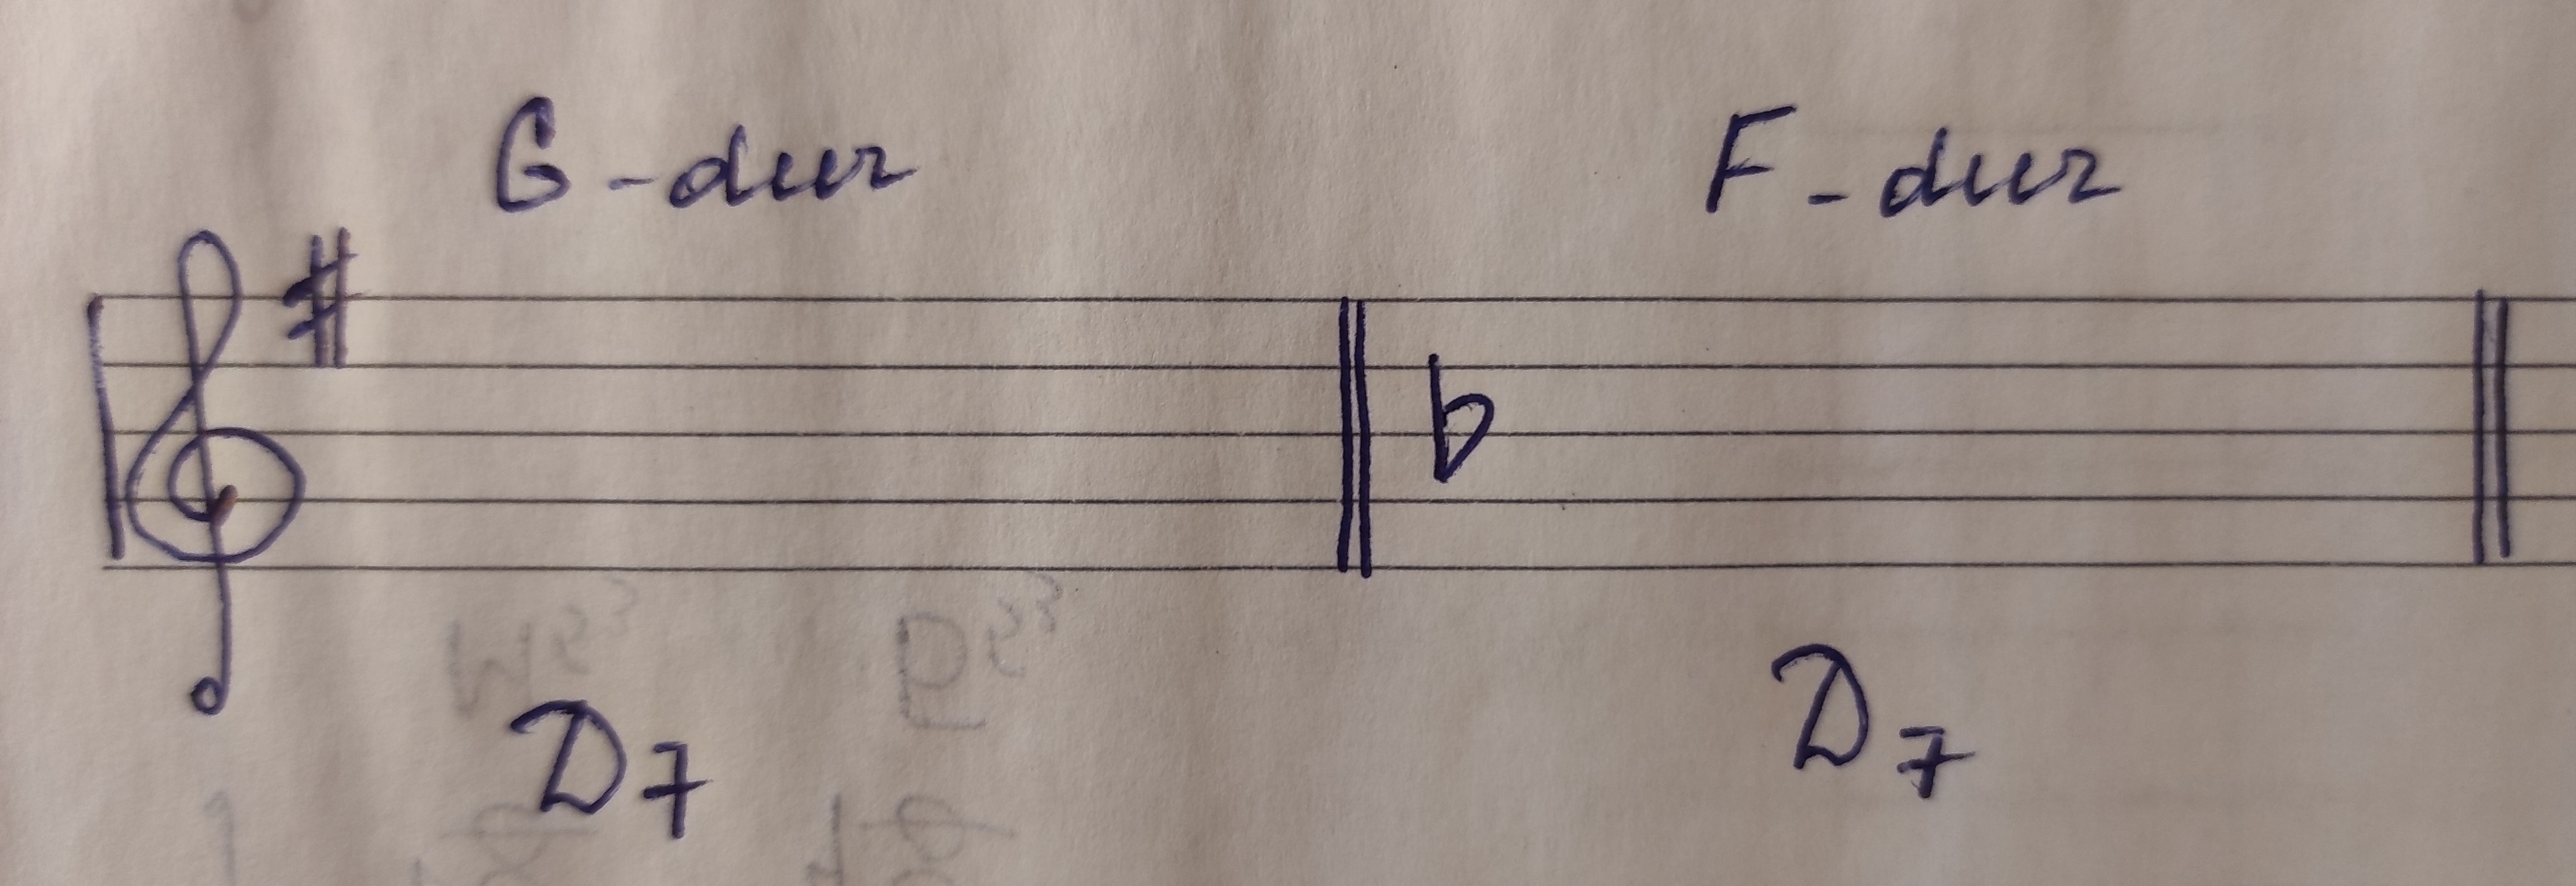 G-dur F-dur
D7 D7